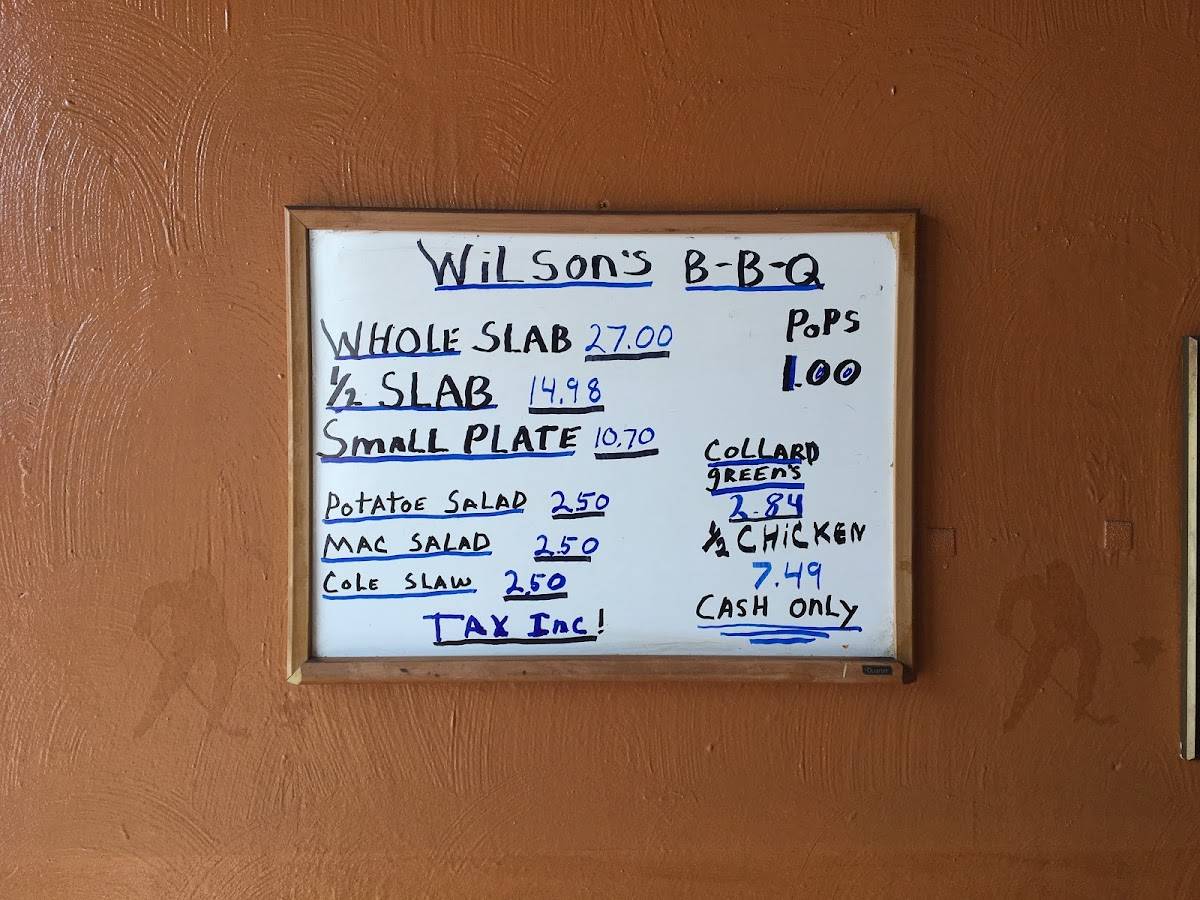 WiLSon's B-B-Q
WHOLE SLAB 27.00
1/2 SLAB 14.98
SmALL PLATE 10.70
POtAtOE SALAD 2.50
MAC SALAD 2.50
COLE SLAW 2.50
TAX Inc!
PoPS
1.00
COLLARD
gREEn's
2.84
1/2 CHiCKEN
7.49
CASH OnLy